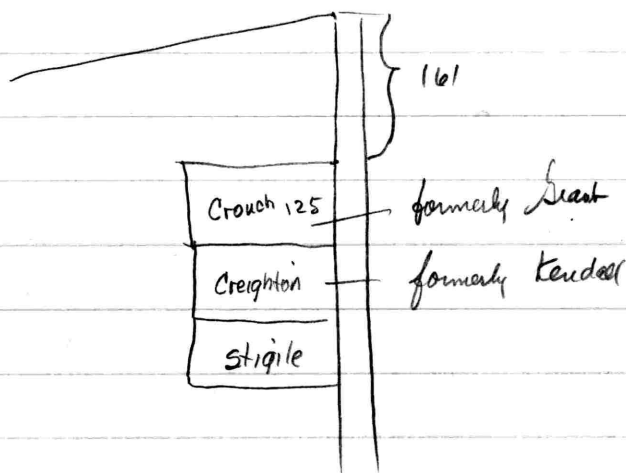 161
Crouch 125
formerly Grant
Creighton
formerly Kendall
Stigile